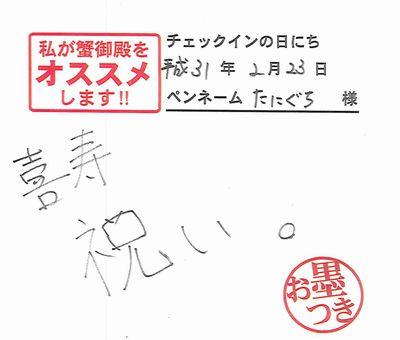 私が蟹御殿を
オススメ
します!!
チェックインの日にち
平成31年2月23日
ペンネーム たにぐち 様
喜寿
祝い。
お墨つき